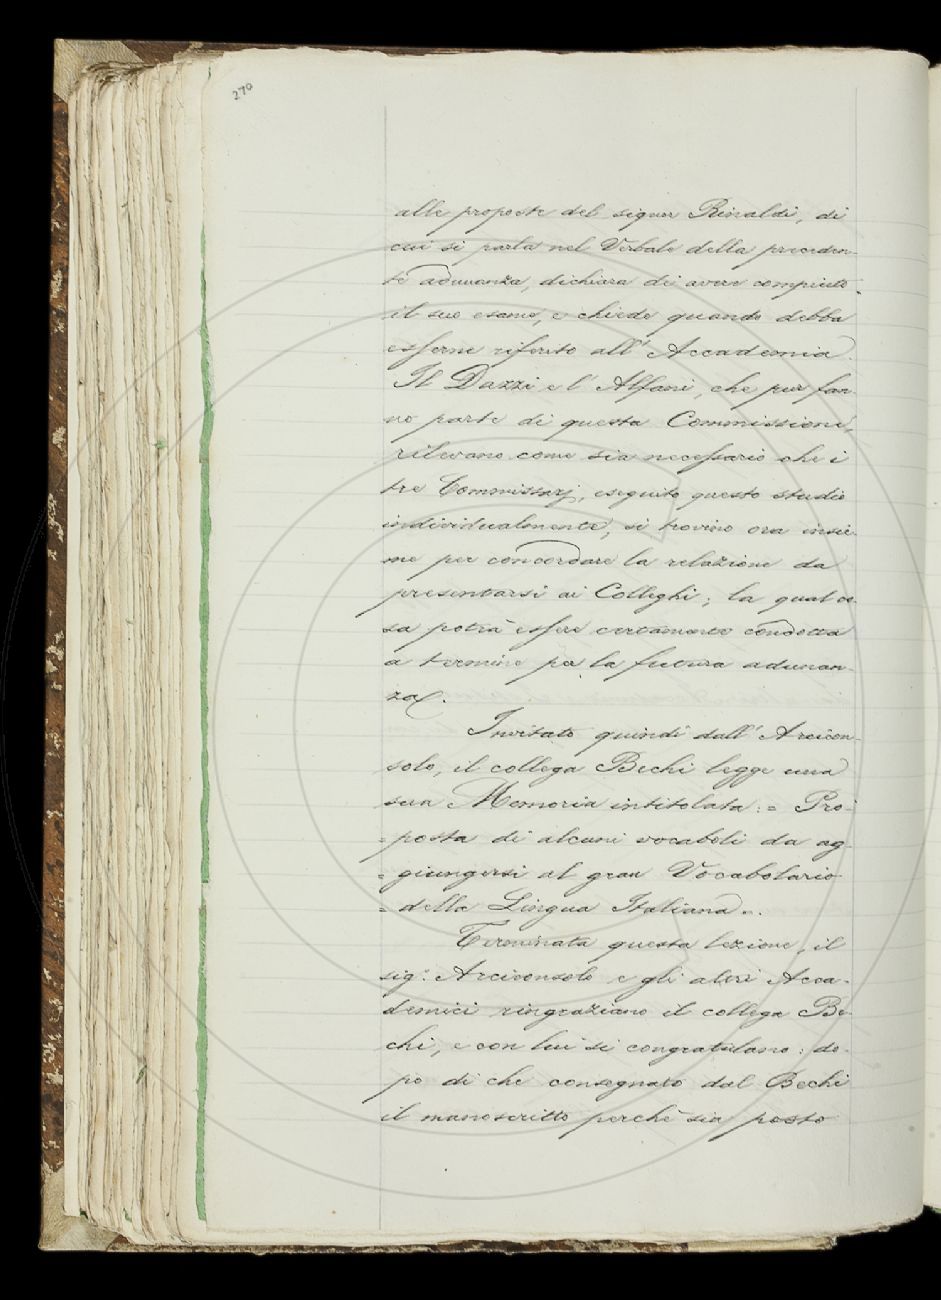 270
alle proposte del signor Rinaldi, di
cui si parla nel Verbale della preceden-
te adunanza, dichiara di avere compiuto
il suo esame, e chiede quando debba
esserne riferito all'Accademia.
Il Dazzi e l'Alfani, che pur fan-
no parte di questa Commissione,
rilevano come sia necessario che i
tre Commissarj, eseguito questo studio
individualmente, si trovino ora insie-
me per concordare la relazione da
presentarsi ai Colleghi; la qual co-
sa potrà essere certamente condotta
a termine per la futura adunan-
za.
Invitato quindi dall'Arcicon-
solo, il collega Bechi legge una
sua Memoria intitolata: = Pro-
= posta di alcuni vocaboli da ag-
= giungersi al gran Vocabolario
= della Lingua Italiana =.
Terminata questa lezione, il
sig.r Arciconsolo e gli altri Acca-
demici ringraziano il collega Be-
chi, e con lui si congratulano: do-
po di che consegnato dal Bechi
il manoscritto perchè sia posto